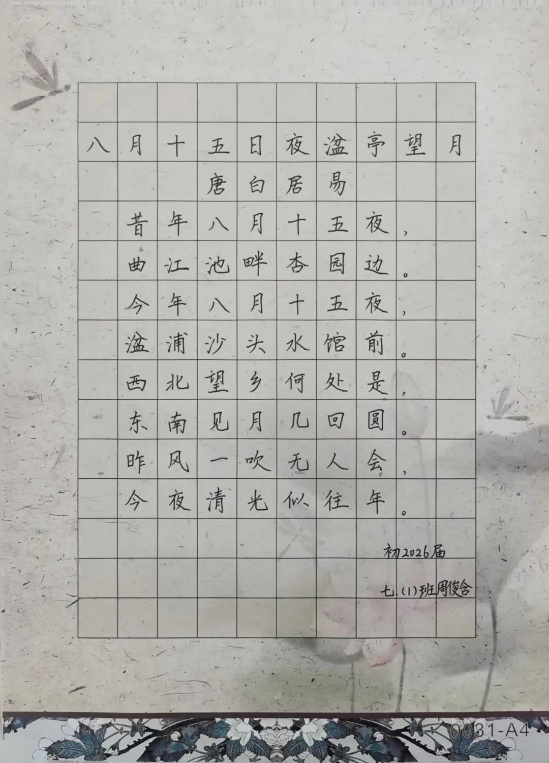 八月十五日夜湓亭望月
唐白居易
昔年八月十五夜，
曲江池畔杏园边。
今年八月十五夜，
湓浦沙头水馆前。
西北望乡何处是，
东南见月几回圆。
昨风一吹无人会，
今夜清光似往年。
初2026届
七.(1)班周俊含
0031-A4